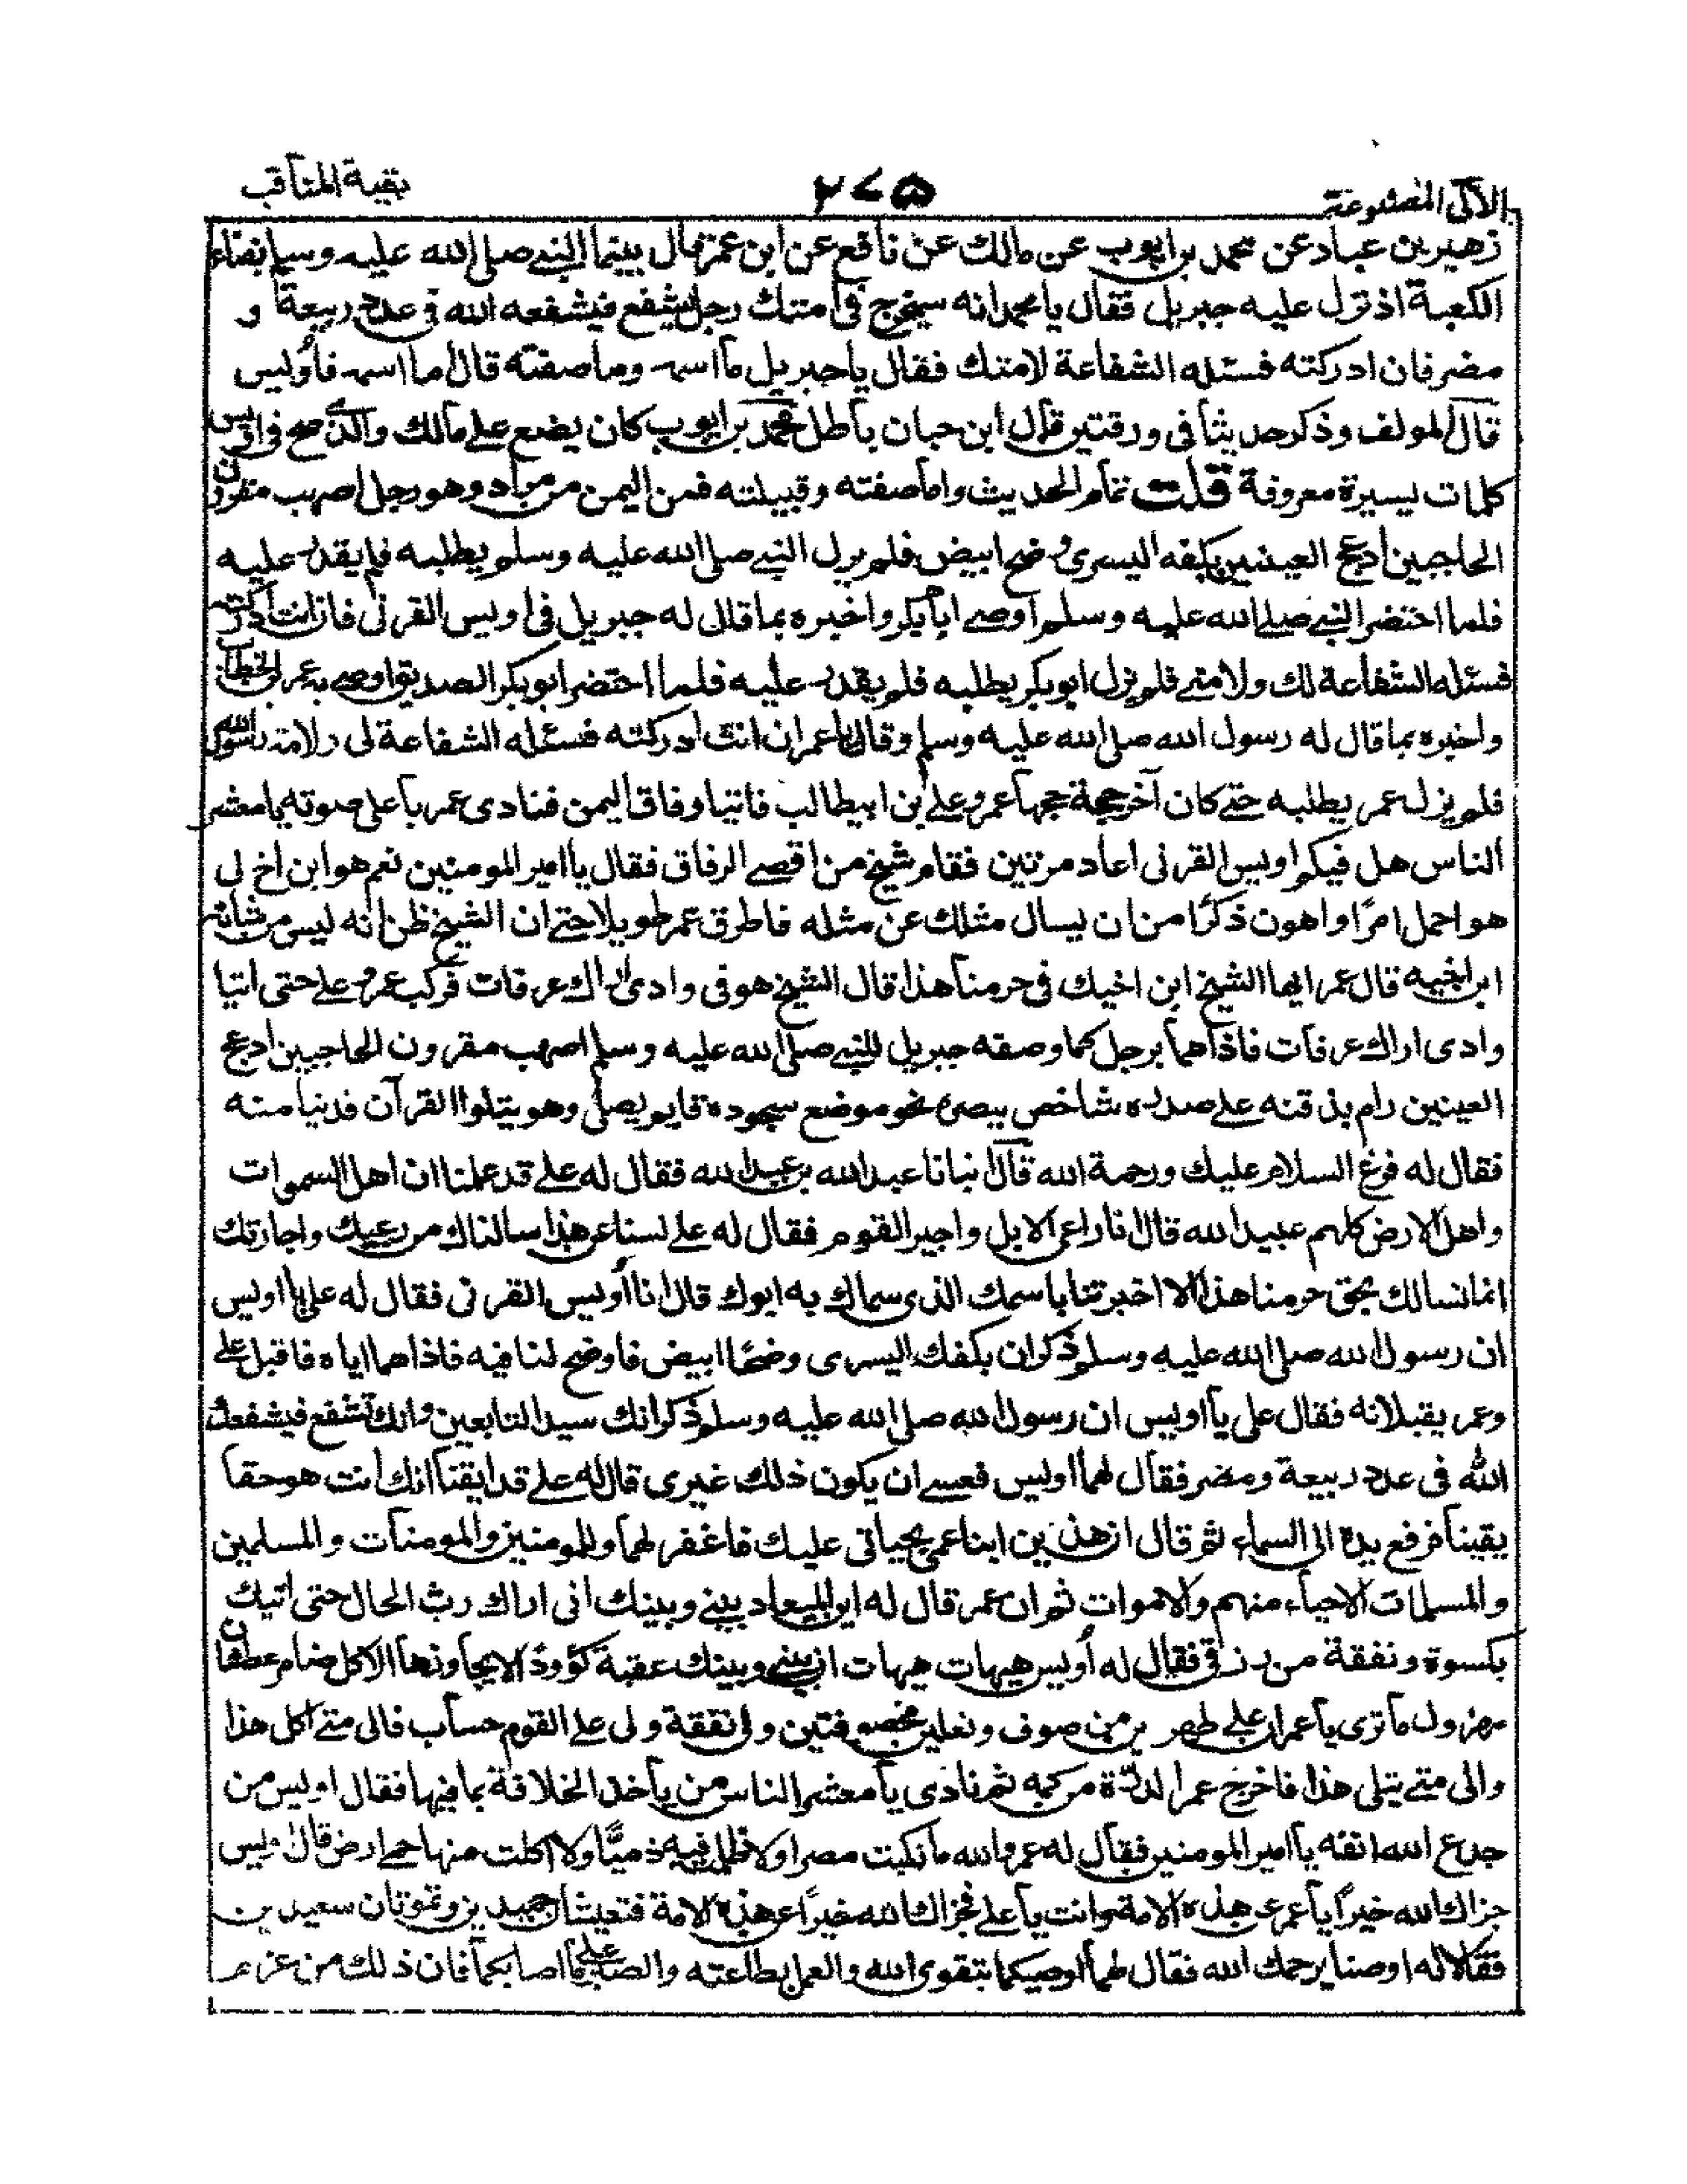 الآلى المصنوعة ٢٧٥ بقية المناقب
زهير بن عباد عن محمد بن ايوب عن مالك عن نافع عن ابن عمر قال بينما النبي صلى الله عليه وسلم بفناء
الكعبة اذ نزل عليه جبريل فقال يا محمد انه سيخرج في امتك رجل يشفع فيشفعه الله في عدد ربيعة و
مضر فان ادركته فسئله الشفاعة لامتك فقال يا جبريل ما اسمه وما صفته قال اما اسمه فأويس
قال المولف وذكر حديثا في ورقتين قال ابن حبان باطل محمد بن ايوب كان يضع على مالك والذي صح في اويس
كلمات يسيرة معروفة قلت تمام الحديث واما صفته وقبيلته فمن اليمن من مراد وهو رجل اصهب مقرون
الحاجبين ادعج العينين بكفه اليسرى وضح ابيض فلم يزل النبي صلى الله عليه وسلم يطلبه فلم يقدر عليه
فلما احتضر النبي صلى الله عليه وسلم اوصى ابا بكر واخبره بما قال له جبريل في اويس القرني فان انت ادركته
فسئله الشفاعة لك ولامتي فلم يزل ابو بكر يطلبه فلم يقدر عليه فلما احتضر ابو بكر الصديق اوصى به عمر بن الخطاب
واخبره بما قال له رسول الله صلى الله عليه وسلم وقال يا عمر ان انت ادركته فسئله الشفاعة لى ولامة رسول الله
فلم يزل عمر يطلبه حتى كان آخر حجة حجها عمر وعلى بن ابيطالب فاتيا رفاق اليمن فنادى عمر بأعلى صوته يا معشر
الناس هل فيكم اويس القرنى اعاد مرتين فقام شيخ من اقصى الرفاق فقال يا امير المومنين نعم هو ابن اخ لى
هو اخمل امرًا واهون ذكرًا من ان يسال مثلك عن مثله فاطرق عمر طويلا حتى ان الشيخ ظن انه ليس من شانه
ابن اخيه قال عمر ايها الشيخ ابن اخيك في حرمنا هذا قال الشيخ هو في وادى اراك عرفات فركب عمر وعلى حتى اتيا
وادى اراك عرفات فاذا هما برجل كما وصفه جبريل للنبي صلى الله عليه وسلم اصهب مقرون الحاجبين ادعج
العينين رام بذقنه على صدره شاخص ببصره نحو موضع سجوده قايم يصلى وهو يتلوا القرآن فدنيا منه
فقال له فرغ السلام عليك ورحمة الله قال انبانا عبد الله بن عبد الله فقال له على قد علمنا ان اهل السموات
واهل الارض كلهم عبيد الله قال انا راعى الابل واجير القوم فقال له على لسنا عن هذا سالناك من رعيك واجارتك
انما نسالك بحق حرمنا هذا الا اخبرتنا باسمك الذى سماك به ابوك قال انا أويس القرنى فقال له على يا اويس
ان رسول الله صلى الله عليه وسلم ذكر ان بكفك اليسرى وضحًا ابيض فاوضح لنا فيه فاذا هما اياه فاقبل على
وعمر يقبلانه فقال على يا اويس ان رسول الله صلى الله عليه وسلم ذكر انك سيد التابعين وانك تشفع فيشفعك
الله في عدد ربيعة ومضر فقال لهما اويس فعسى ان يكون ذلك غيرى قال له على قد ايقنا انك انت هو حقا
يقينا فرفع يده الى السماء ثم قال ان هذين ابنا عمي بحياتى عليك فاغفر لهما وللمومنين والمومنات والمسلمين
والمسلمات الاحياء منهم والاموات ثم ان عمر قال له اين الميعاد بيني وبينك انى اراك رث الحال حتى اتيك
بكسوة ونفقة من رزقى فقال له أويس هيهات هيهات ان بيني وبينك عقبة كؤودًا لا يجاوزها الا كل ضامر عطفان
مهزول ما ترى يا عمر ان على طمرين من صوف ونعلين مخصوفتين ولى نفقة ولى على القوم حساب فالى متى اكل هذا
والى متى يبلى هذا فاخرج عمر الدرة من كمه ثم نادى يا معشر الناس من يأخذ الخلافة بما فيها فقال اويس من
جدع الله انفه يا امير المومنين فقال له عمر والله ما نكبت مصرا ولا ظلمت فيه ذميًّا ولا اكلت منها حمى ارض قال اويس
جزاك الله خيرًا يا عمر عن هذه الامة وانت يا على فجزاك الله خيرًا عن هذه الامة فتعيشان حميدين وتموتان سعيدين
فقالا له اوصنا يرحمك الله فقال لهما أوصيكما بتقوى الله والعمل بطاعته والصبر على ما اصابكما فان ذلك من عزم